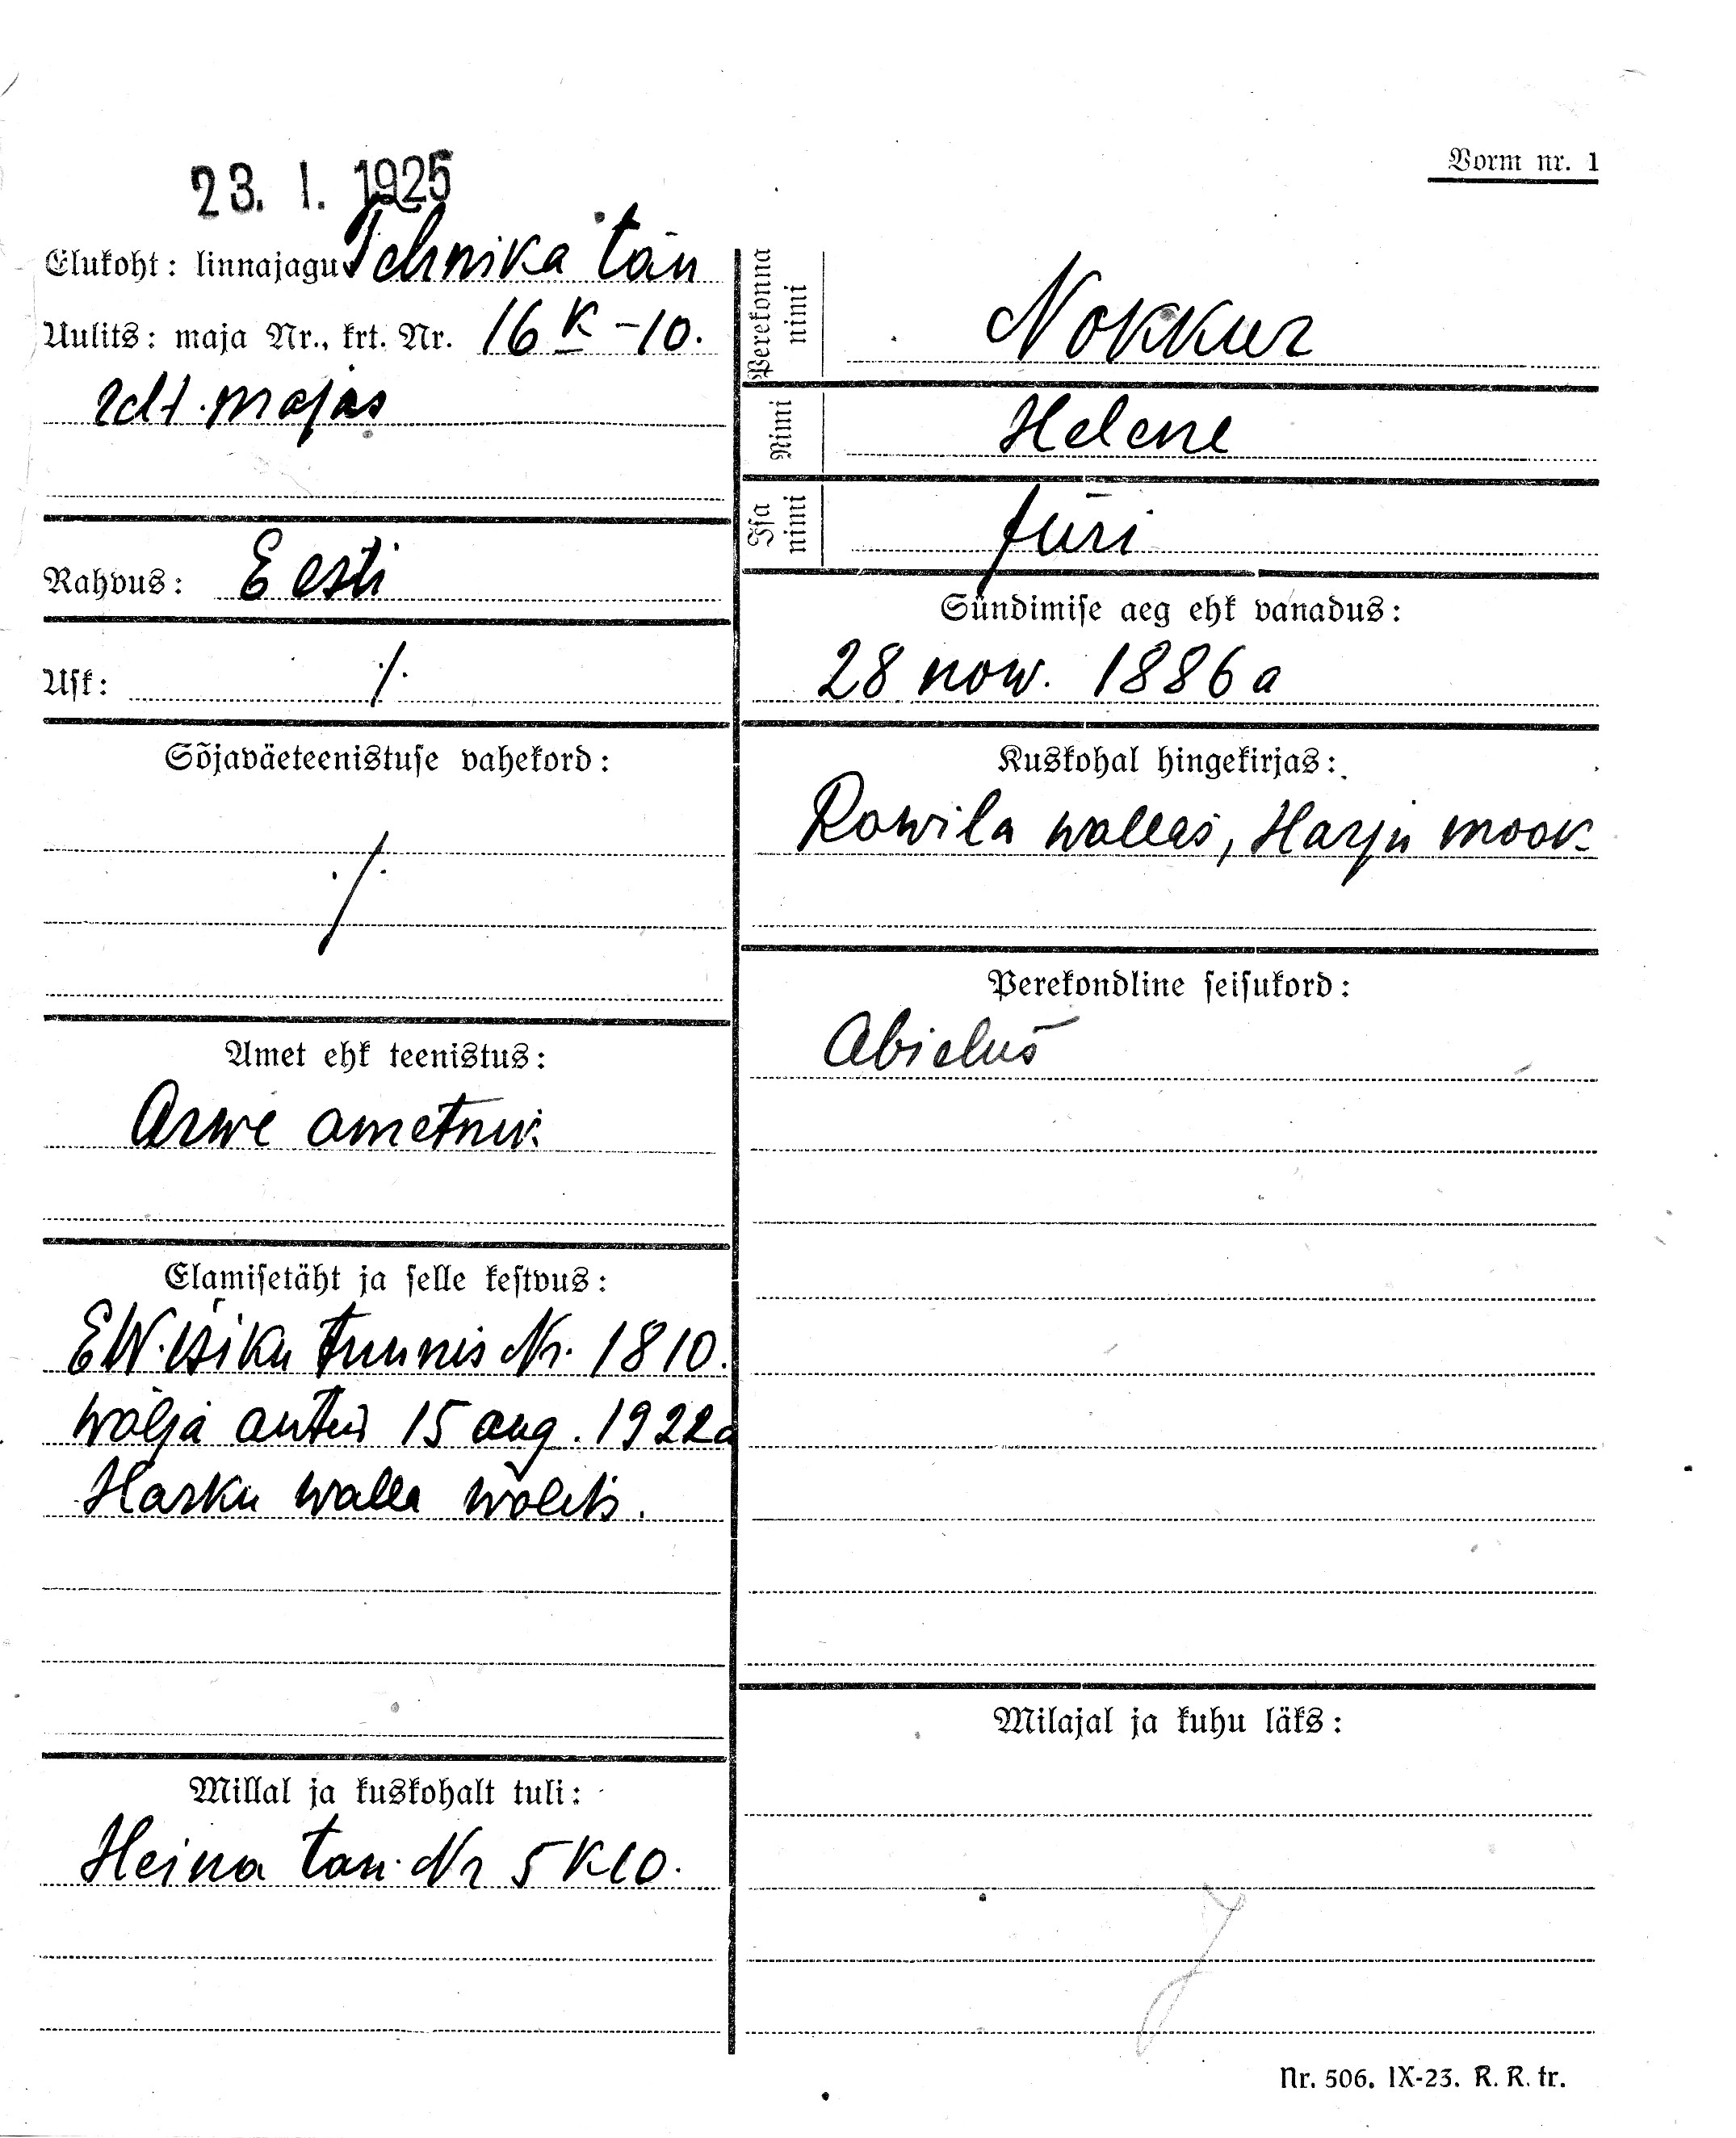 Vorm nr. 1
23. 1. 1925
Elukoht: linnajagu Tehnika tän
Uulits: maja Nr., krt. Nr. 16 K-10.
rdt. majas
Rahvus: Eesti
Usk: ./.
Sõjaväeteenistuse vahekord:
./.
Amet ehk teenistus:
Arwe ametnik
Elamisetäht ja selle kestvus:
EW. isiku tunnis Nr. 1810.
wälja antud 15 aug. 1922a
Harku walla walits.
Millal ja kuskohalt tuli:
Heina tän. Nr 5 K10.
Perekonna nimi Nokkur
Nimi Helene
Isa nimi Jüri
Sündimise aeg ehk vanadus:
28 now. 1886 a
Kuskohal hingekirjas:
Rawila wallas, Harju maak.
Perekondline seisukord:
Abielus
Milajal ja kuhu läks:
Nr. 506. IX-23. R. R. tr.